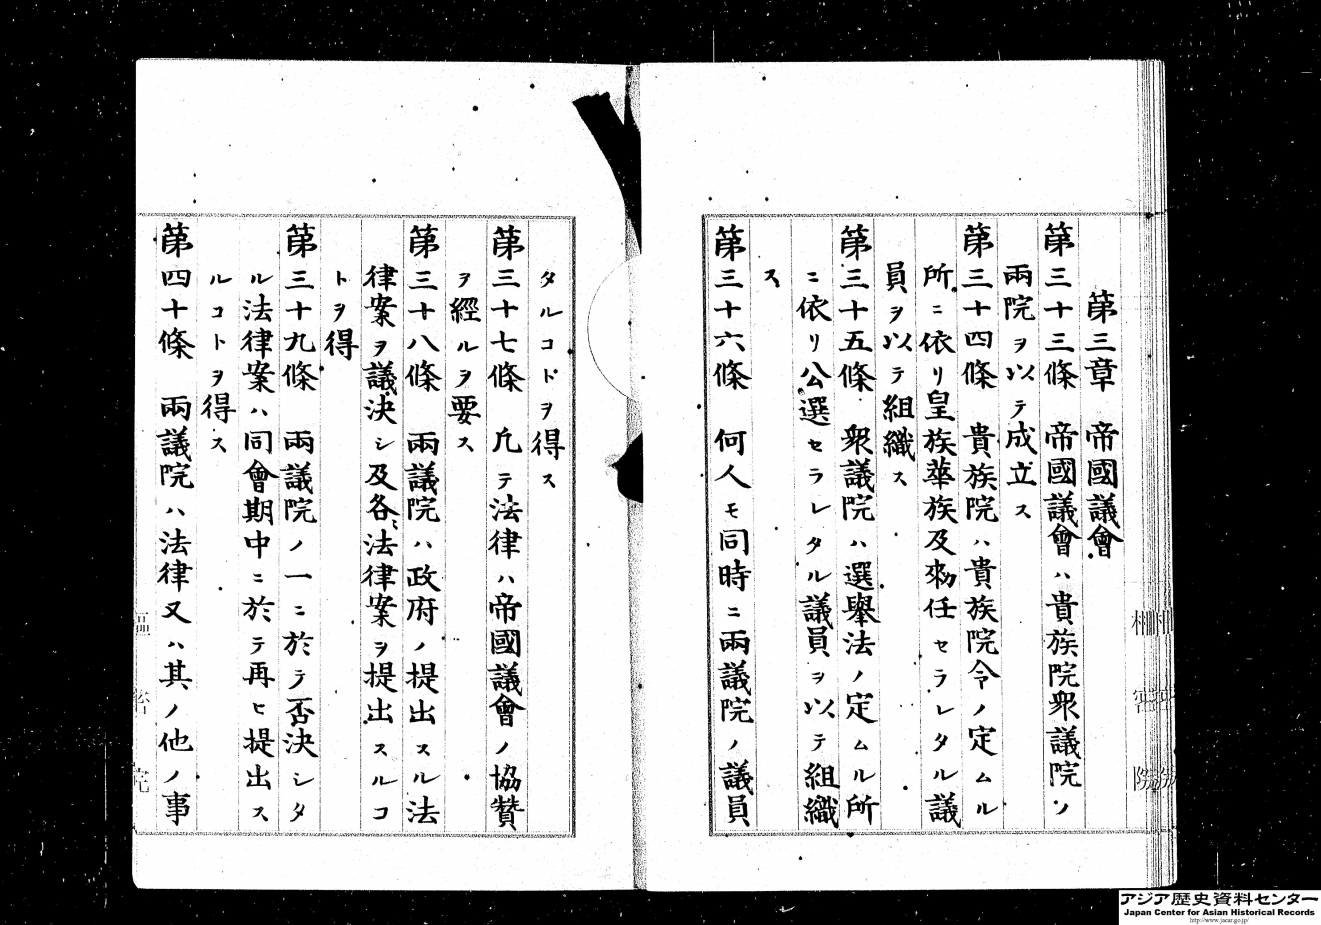 第三章 帝國議會
第三十三條 帝國議會ハ貴族院衆議院ノ
兩院ヲ以テ成立ス
第三十四條 貴族院ハ貴族院令ノ定ムル
所ニ依リ皇族華族及勅任セラレタル議
員ヲ以テ組織ス
第三十五條 衆議院ハ選舉法ノ定ムル所
ニ依リ公選セラレタル議員ヲ以テ組織
ス
第三十六條 何人モ同時ニ兩議院ノ議員
タルコトヲ得ス
第三十七條 凡テ法律ハ帝國議會ノ協贊
ヲ經ルヲ要ス
第三十八條 兩議院ハ政府ノ提出スル法
律案ヲ議決シ及各〻法律案ヲ提出スルコ
トヲ得
第三十九條 兩議院ノ一ニ於テ否決シタ
ル法律案ハ同會期中ニ於テ再ヒ提出ス
ルコトヲ得ス
第四十條 兩議院ハ法律又ハ其ノ他ノ事
樞密院
アジア歴史資料センター
Japan Center for Asian Historical Records
http://www.jacar.go.jp/